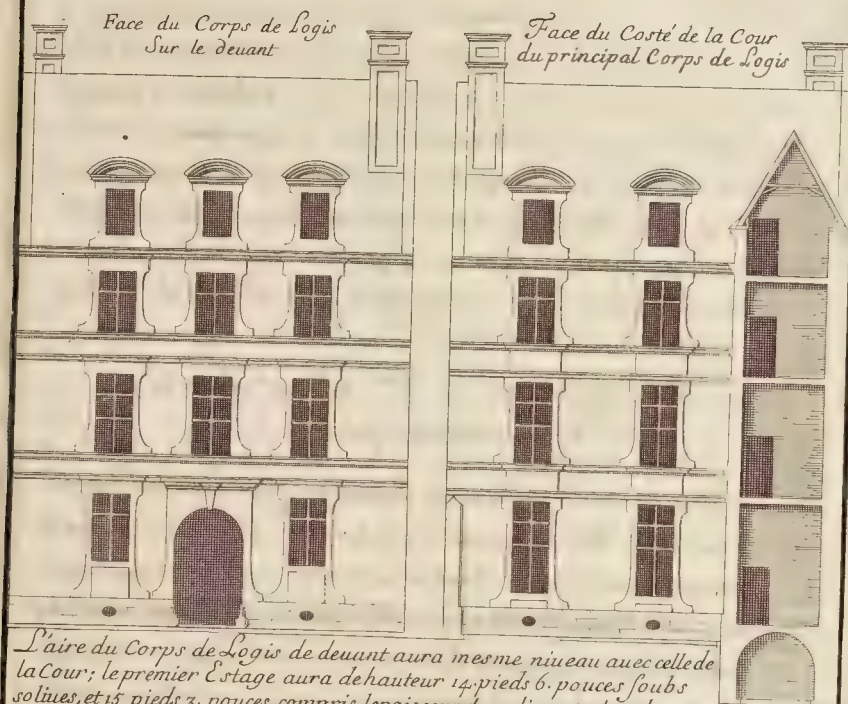 Face du Corps de Logis
Sur le deuant
Face du Costé de la Cour
du principal Corps de Logis
L'aire du Corps de Logis de deuant aura mesme niueau auec celle de
la Cour; le premier Estage aura de hauteur 14. pieds 6. pouces soubs
soliues, et 15 pieds 3. pouces compris